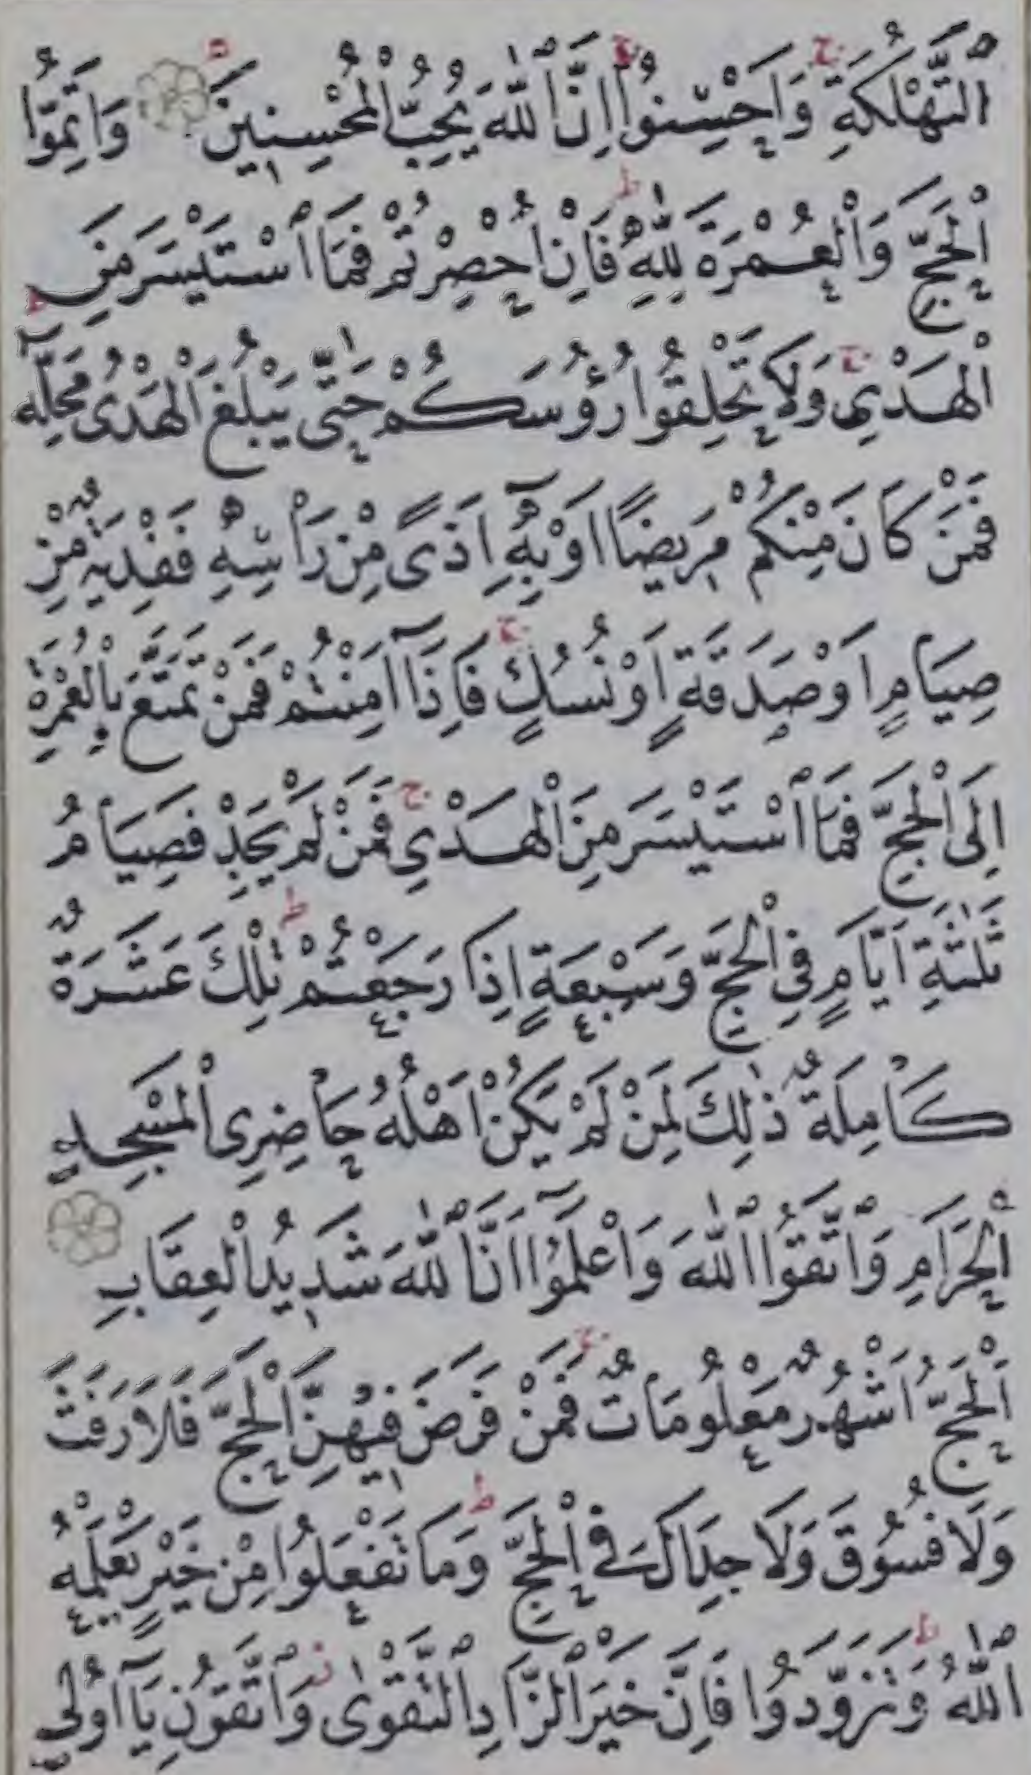 اَلتَّهْلُكَةِ ۚ وَاَحْسِنُوا اِنَّ اللّٰهَ يُحِبُّ الْمُحْسِنِينَ وَاَتِمُّوا
الْحَجَّ وَالْعُمْرَةَ لِلّٰهِ ط فَاِنْ اُحْصِرْتُمْ فَمَا اسْتَيْسَرَ مِنَ
الْهَدْيِ ج وَلَا تَحْلِقُوا رُؤُسَكُمْ حَتّٰى يَبْلُغَ الْهَدْىُ مَحِلَّهُ ط
فَمَنْ كَانَ مِنْكُمْ مَرِيضًا اَوْ بِهِٓ اَذًى مِنْ رَأْسِهِ فَفِدْيَةٌ مِنْ
صِيَامٍ اَوْ صَدَقَةٍ اَوْ نُسُكٍ ج فَاِذَٓا اَمِنْتُمْ فَمَنْ تَمَتَّعَ بِالْعُمْرَةِ
اِلَى الْحَجِّ فَمَا اسْتَيْسَرَ مِنَ الْهَدْيِ ج فَمَنْ لَمْ يَجِدْ فَصِيَامُ
ثَلٰثَةِ اَيَّامٍ فِى الْحَجِّ وَسَبْعَةٍ اِذَا رَجَعْتُمْ ط تِلْكَ عَشَرَةٌ
كَامِلَةٌ ذٰلِكَ لِمَنْ لَمْ يَكُنْ اَهْلُهُ حَاضِرِى الْمَسْجِدِ
الْحَرَامِ وَاتَّقُوا اللّٰهَ وَاعْلَمُٓوا اَنَّ اللّٰهَ شَدِيدُ الْعِقَابِ
اَلْحَجُّ اَشْهُرٌ مَعْلُومَاتٌ ج فَمَنْ فَرَضَ فِيهِنَّ الْحَجَّ فَلَا رَفَثَ
وَلَا فُسُوقَ وَلَا جِدَالَ فِى الْحَجِّ ط وَمَا تَفْعَلُوا مِنْ خَيْرٍ يَعْلَمْهُ
اللّٰهُ ط وَتَزَوَّدُوا فَاِنَّ خَيْرَ الزَّادِ التَّقْوٰى ز وَاتَّقُونِ يَٓا اُولِى